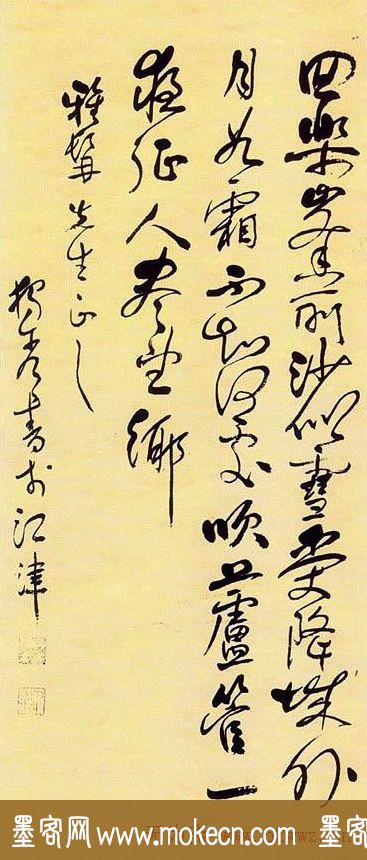 回樂峯前沙似雪受降城外
月如霜不知何處吹蘆管一
夜征人盡望鄉
雅髯先生正之
獨秀書於江津
墨客网www.mokecn.com